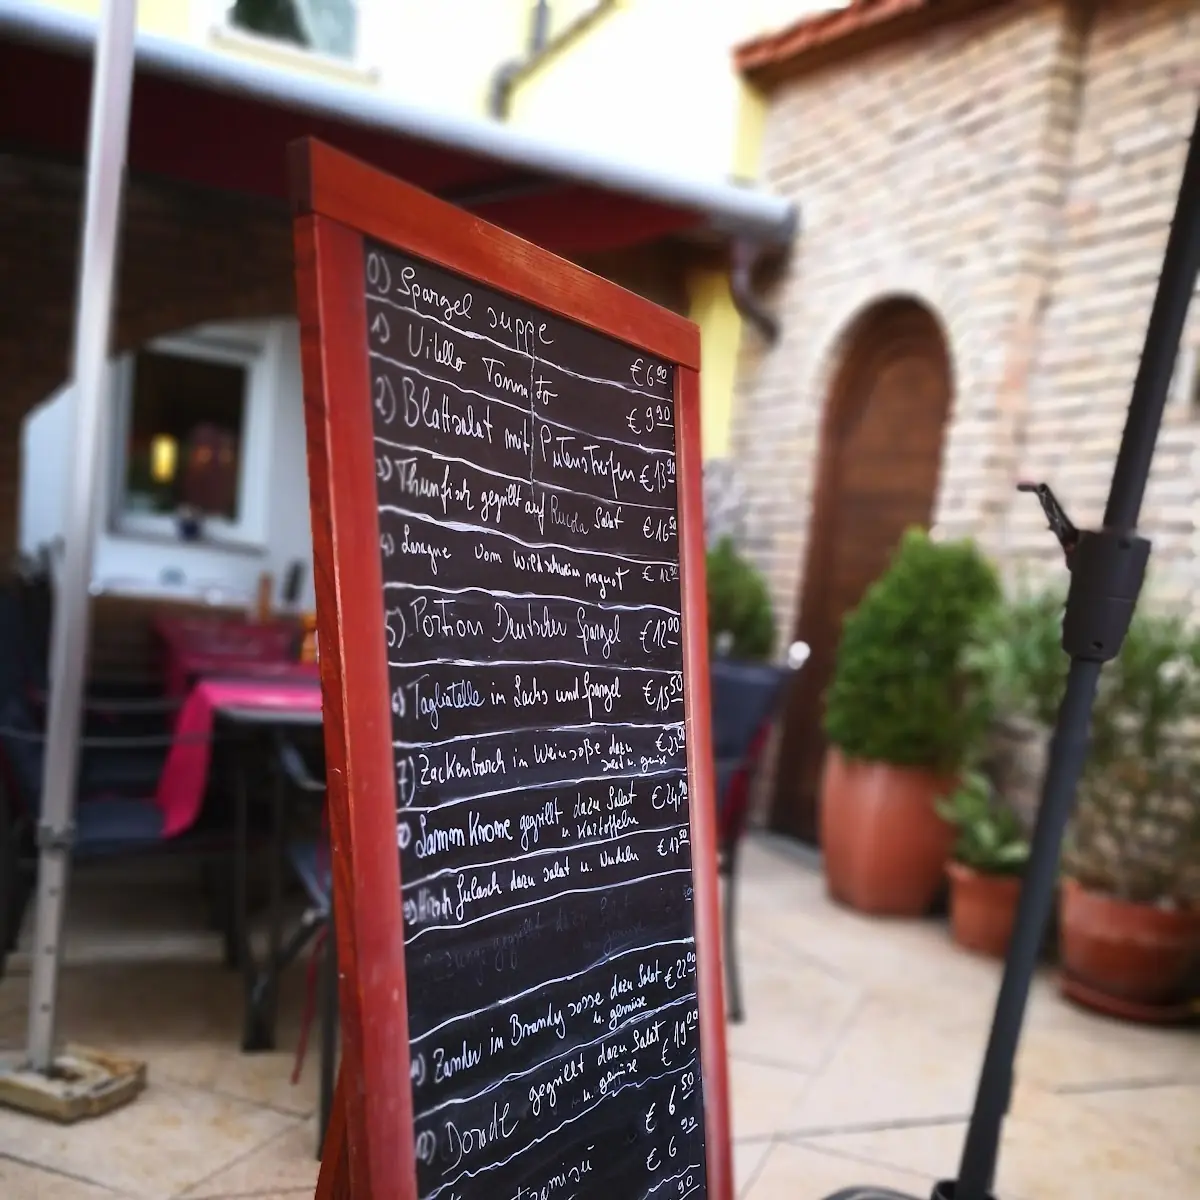 0) Spargel suppe € 6⁰⁰
1) Vitello Tonnato € 9⁹⁰
2) Blattsalat mit Putenstreifen € 13⁹⁰
3) Thunfisch gegrillt auf Rucola Salat € 16⁵⁰
4) Lasagne vom Wildschwein ragout € 12⁹⁰
5) Portion Deutscher Spargel € 12⁰⁰
6) Tagliatelle in Lachs und Spargel € 15⁵⁰
7) Zackenbarsch in Weinsoße dazu
Salat u. gemüse
8) Lamm Krone gegrillt dazu Salat € 24,⁹⁰
u. Kartoffeln
9) Hirsch Gulasch dazu salat u. Nudeln € 17⁵⁰
gegrillt dazu
u. gemüse
11) Zander in Brandy sosse dazu Salat € 22⁰⁰
u. gemüse
12) Dorade gegrillt dazu Salat € 19⁰⁰
u. gemüse
€ 6⁵⁰
Tiramisú € 6⁹⁰
90